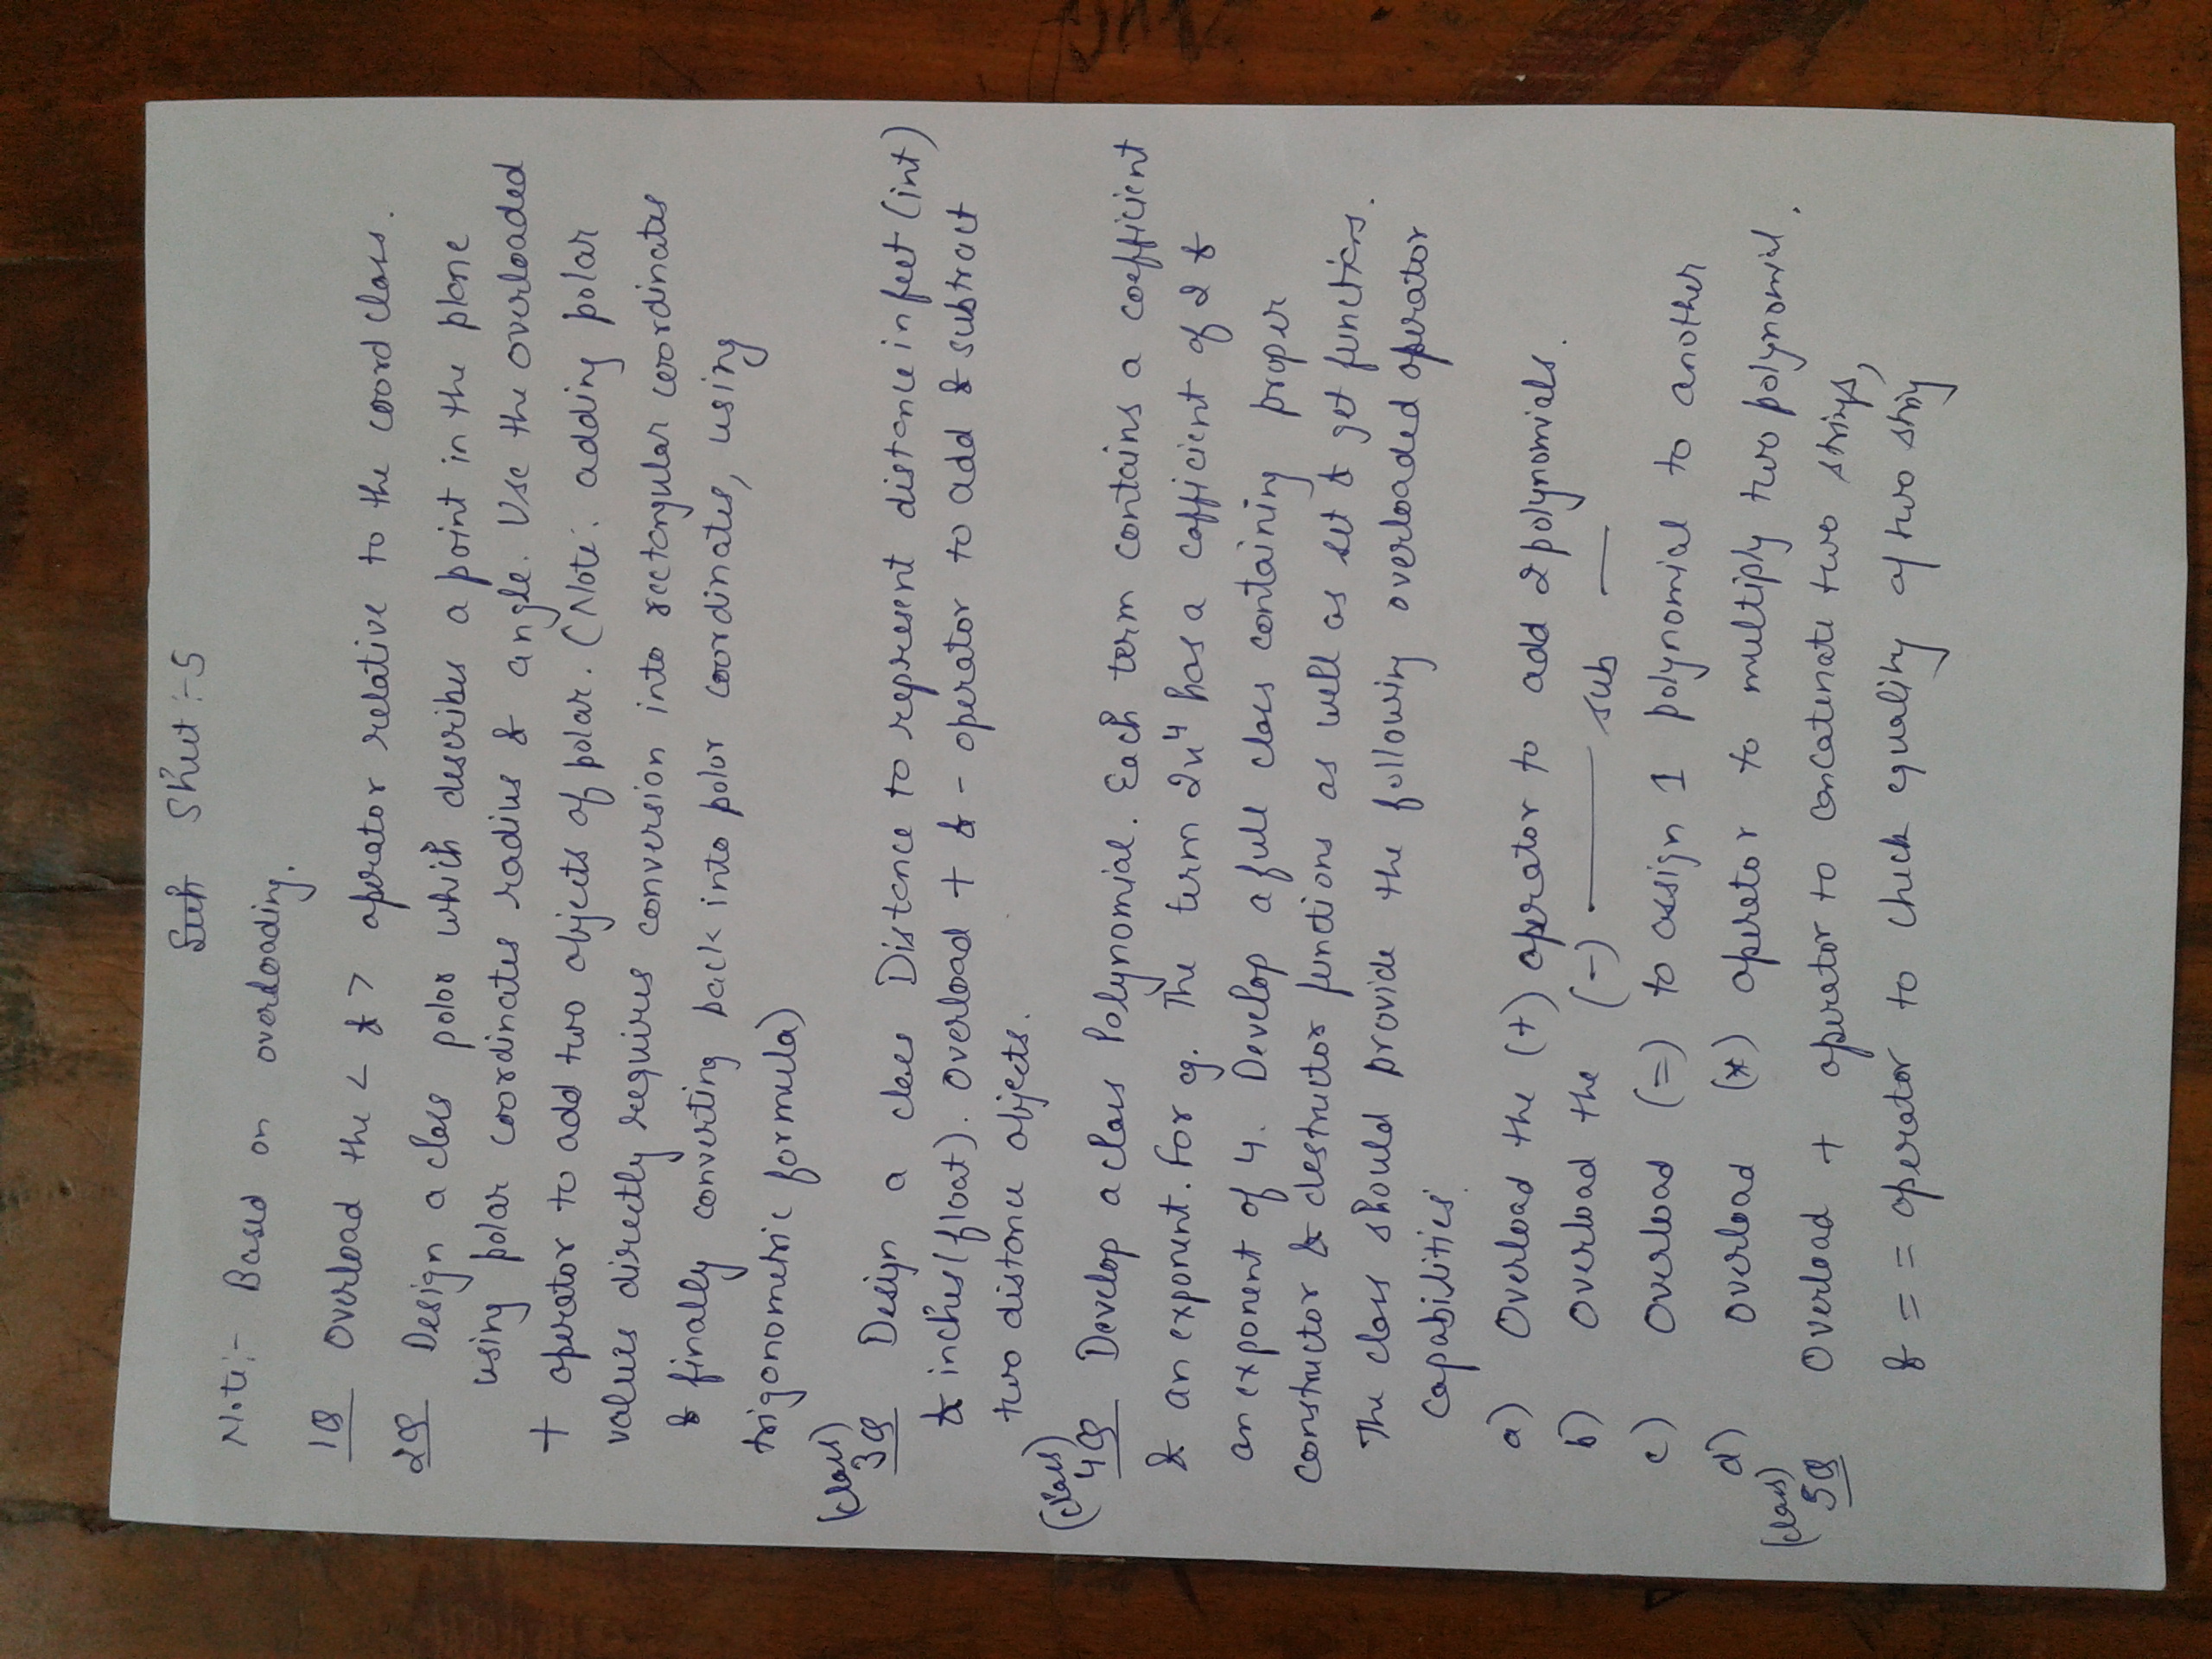 Sheet :- 5
Note:- Based on overloading.
1Q Overload the < & > operator relative to the coord class.
2Q Design a class polar which describes a point in the plane
using polar coordinates radius & angle. Use the overloaded
+ operator to add two objects of polar. (Note: adding polar
values directly requires conversion into rectangular coordinates
& finally converting back into polar coordinates, using
trigonometric formula)
(class)
3Q Design a class Distance to represent distance in feet (int)
& inches (float). Overload + & - operator to add & subtract
two distance objects.
(class)
4Q Develop a class Polynomial. Each term contains a coefficient
& an exponent. For eg. The term 2x⁴ has a cofficient of 2 &
an exponent of 4. Develop a full class containing proper
constructor & destructor functions as well as set & get functions.
The class should provide the following overloaded operator
capabilities.
a) Overload the (+) operator to add 2 polynomials.
b) Overload the (-) —— sub —
c) Overload (=) to assign 1 polynomial to another
d) Overload (*) operator to multiply two polynomial.
(class)
5Q Overload + operator to concatenate two strings,
& == operator to check equality of two string